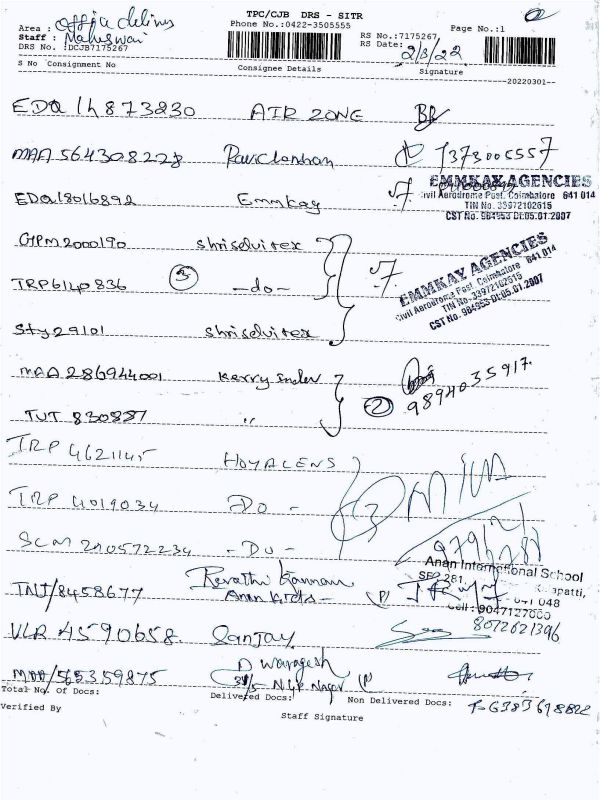 TPC/CJB DRS - SITR
Phone No.:0422-3505555
Page No.:1
Area : office delivery
Staff : Maheswari
DRS No. :DCJB7175267
RS No.:7175267
RS Date: 2/3/22
S No Consignment No Consignee Details Signature
20220301
EDQ 14873230 AIR ZONE
MAA 564308228 Ravichandran 7373005557
EDQ18016892 Emmkay
EMMKAY AGENCIES
Civil Aerodrome Post, Coimbatore 641 014
TIN No. 33972102615
CST No. 984953 Dt:05.01.2007
GPM2000190 shriselvitex
TRP6140836 3 -do-
EMMKAY AGENCIES
Civil Aerodrome Post, Coimbatore 641 014
TIN No. 33972102615
CST No. 984953 Dt:05.01.2007
Sty29101 shriselvitex
MAA 286944001 Kerry Indev
2 9894035917
TUT 830887 "
TRP 4621145 HOYALENS
TRP 4019034 -DO-
3
SCM 290572234 -DO-
Anan International School
TNJ/8458677 Revathi Kannan
Anan Kids
641 048
Cell : 9047127000
8072621396
VLR 4590658 Sanjay
MDU/565359875 D Waragesh
Total No. of Docs: Delivered Docs: Non Delivered Docs:
Verified By
Staff Signature